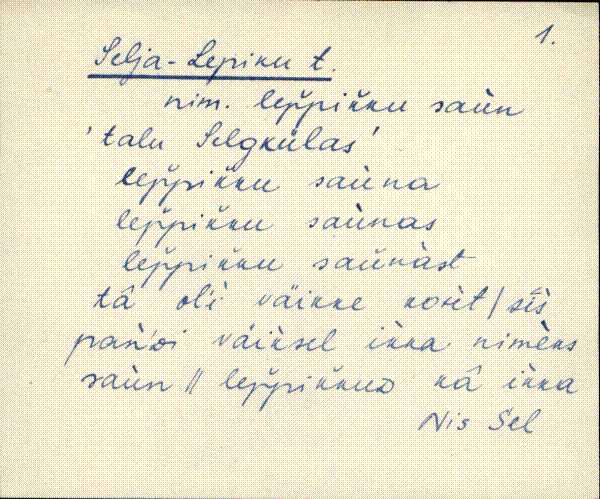 1.
Selja-Lepiku t.
nim. lep̌pik̆ku saùn
'talu Selgkülas'
lep̌pik̆ku saùna
lep̌pik̆ku saùnas
lep̌pik̆ku saùnàst
tâ oĺi väikke
pańdi väiksel ikka nimèks
saùn || lep̌pik̆kud kâ ikka
Nis Sel